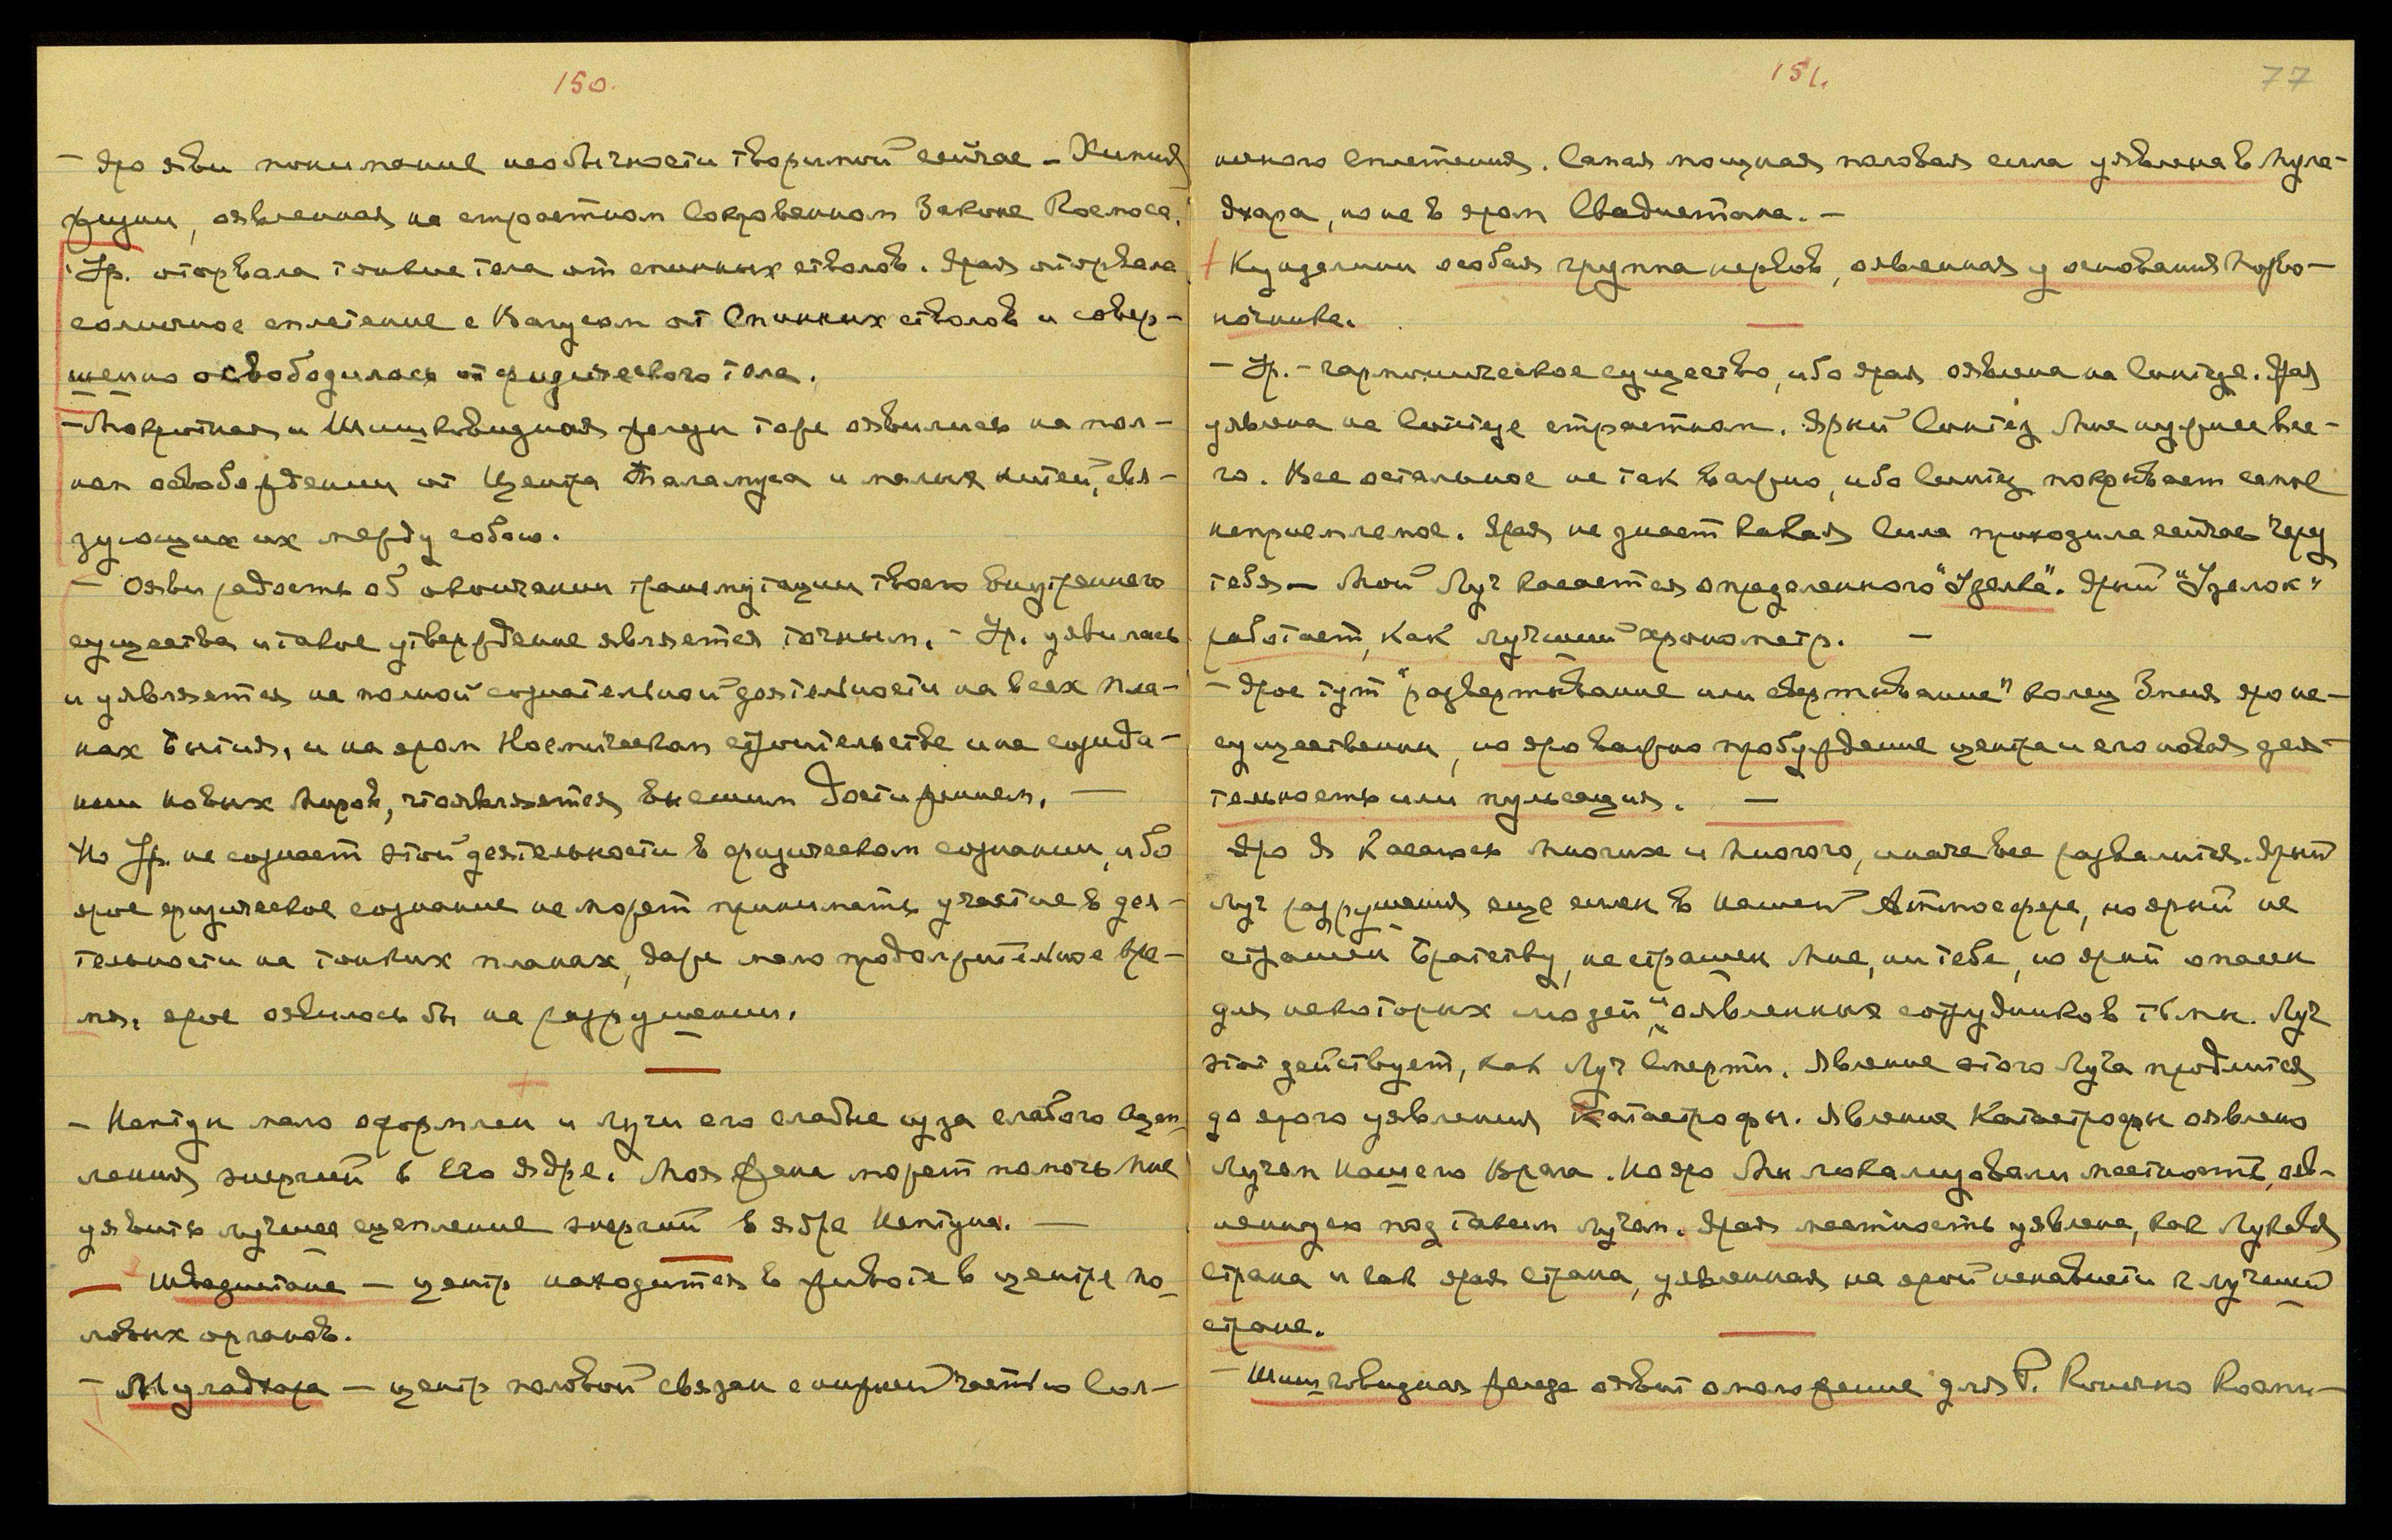 150.
— Яро яви понимание необычности творимой сейчас — Химия
жизни, оявленная на страстном Сокровенном Законе Космоса.
Ур. оторвала тонкие тела от спинных стволов. Ярая оторвала
солнечное сплетение с Вагусом от Спинных стволов и совер-
шенно освободилась от физического тела.
— Мокротная и Шишковидная железы тоже оявились на пол-
ном освобождении от Центра Таламуса и малых нитей, свя-
зующих их между собою.
— Ояви радость об окончании трансмутации твоего внутреннего
существа и такое утверждение является точным. — Ур. уявилась
и уявляется на полной сознательной деятельности на всех пла-
нах Бытия, и на яром Космическом строительстве и на созида-
нии новых Миров, что является высшим Достижением. —
Но Ур. не сознает этой деятельности в физическом сознании, ибо
ярое физическое сознание не может принимать участие в дея-
тельности на тонких планах, даже мало продолжительное вре-
мя, ярое оявилось бы на разрушении.
— Нептун мало оформлен и лучи его слабые из за слабого сцеп-
ления энергий в Его ядре. Моя Жена может помочь Мне
уявить лучшее сцепление энергий в ядре Нептуна. —
— Шваднистана — центр находится в животе в центре по-
ловых органов.
— Муладхара — центр половой связан с нижней частью Сол-
151.
77
нечного Сплетения. Самая мощная половая сила уявлена в Мула-
дхара, но не в яром Свадистана. —
Кундалини особая группа нервов, оявленная у основания Позво-
ночника.
— Ур. — гармоническое существо, ибо ярая оявлена на Синтезе. Ярая
уявлена на Синтезе страстном. Ярый Синтез Мне нужнее все-
го. Все остальное не так важно, ибо Синтез покрывает самое
неприемлемое. Ярая не знает какая Сила проходила сейчас через
тебя — Мой Луч касается определенного "Узелка". Ярый "Узелок"
работает, как лучший хронометр. —
— Ярое тут "развертывание или свертывание" колец Змия яро не-
существенны, но яро важно пробуждение центра и его новая дея-
тельность или пульсация. —
Яро Я Касаюсь Многих и Многого, иначе все развалится. Ярый
Луч разрушения еще силен в нашей Атмосфере, но ярый не
страшен Братству, не страшен Мне, ни тебе, но ярый опасен
для некоторых людей, оявленных сотрудников тьмы. Луч
этот действует, как Луч Смерти. Явление этого Луча продлится
до ярого уявления Катастрофы. Явление Катастрофы оявлено
Лучом Нашего Врага. Но яро Мы локализовали местность, ояв-
ленную под таким лучом. Ярая местность уявлена, как Лукавая
Страна и как ярая Страна, уявленная на ярой ненависти к лучшей
стране.
— Шишковидная железа оявит омоложение для Р. Конечно Косми-